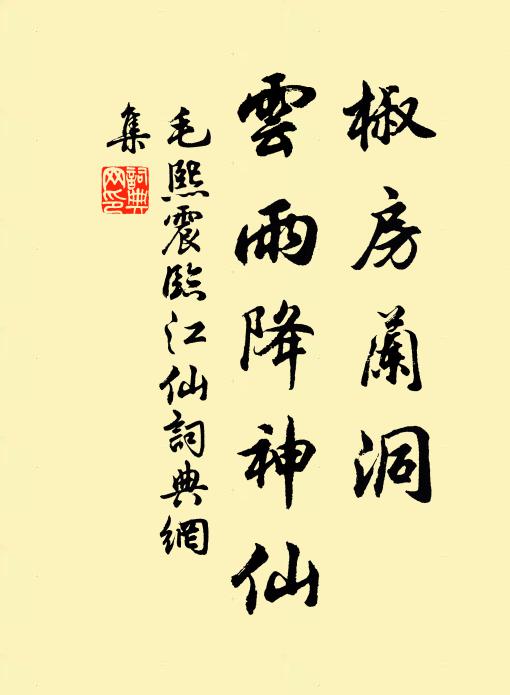 椒房蘭洞
雲雨降神仙
毛熙震臨江仙詞典網
集
詞典
网印